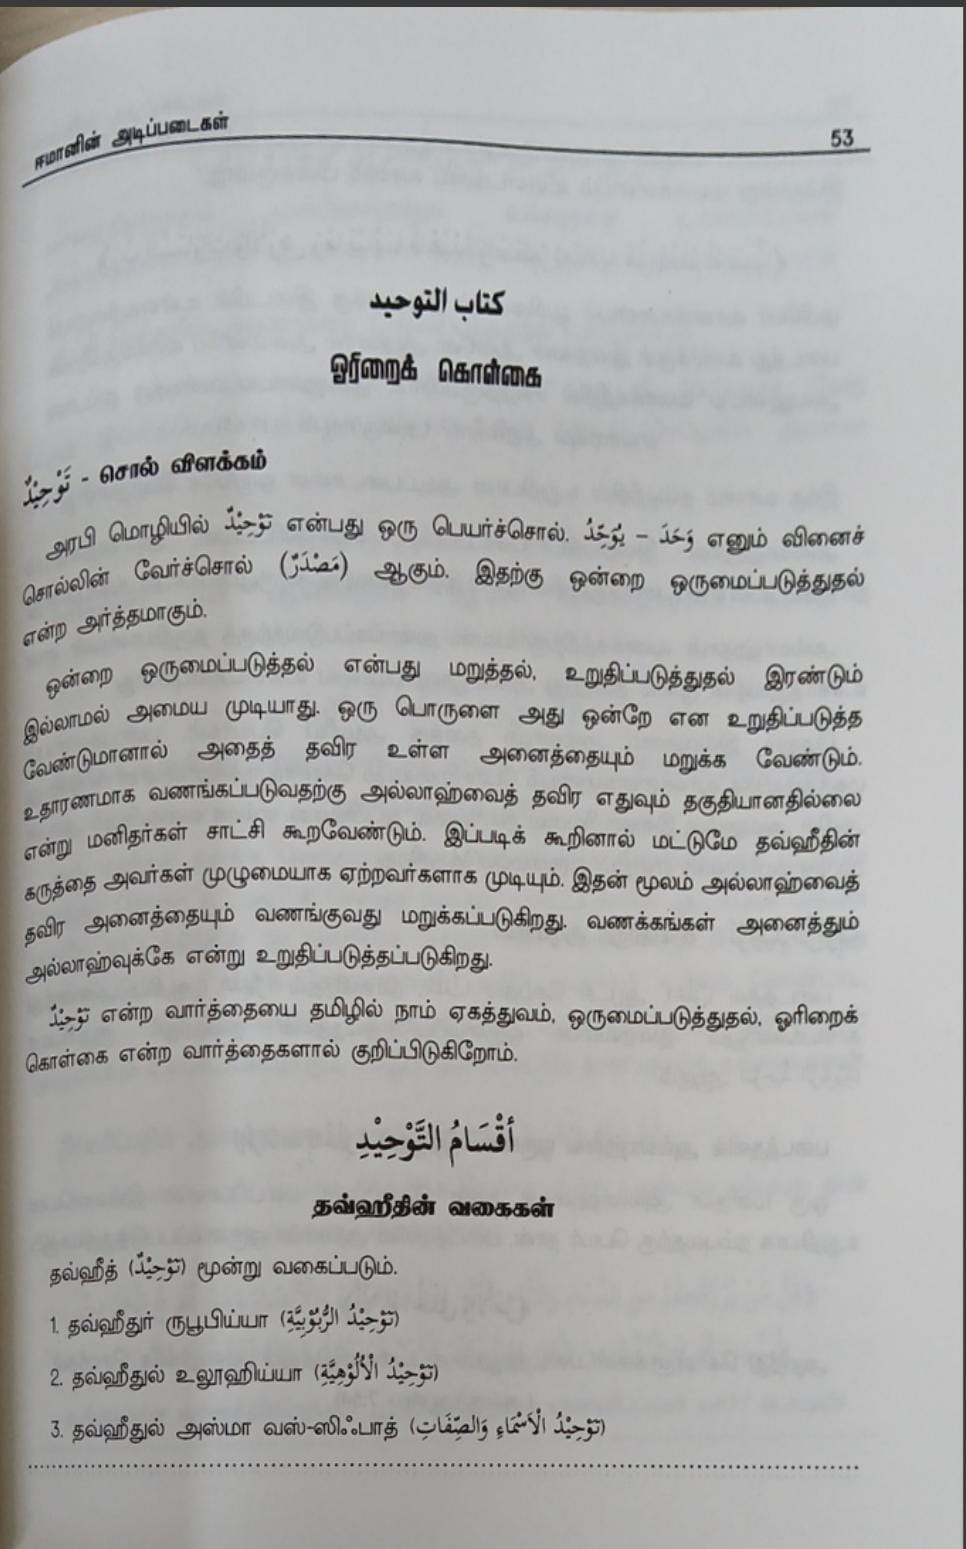 ஈமானின் அடிப்படைகள் 53
كتاب التوحيد
ஓரிறைக் கொள்கை
تَوْحِيْدٌ - சொல் விளக்கம்
அரபி மொழியில் تَوْحِيْدٌ என்பது ஒரு பெயர்ச்சொல். وَحَدَ – يُوَحِّدُ எனும் வினைச்
சொல்லின் வேர்ச்சொல் (مَصْدَرٌ) ஆகும். இதற்கு ஒன்றை ஒருமைப்படுத்துதல்
என்ற அர்த்தமாகும்.
ஒன்றை ஒருமைப்படுத்தல் என்பது மறுத்தல், உறுதிப்படுத்துதல் இரண்டும்
இல்லாமல் அமைய முடியாது. ஒரு பொருளை அது ஒன்றே என உறுதிப்படுத்த
வேண்டுமானால் அதைத் தவிர உள்ள அனைத்தையும் மறுக்க வேண்டும்.
உதாரணமாக வணங்கப்படுவதற்கு அல்லாஹ்வைத் தவிர எதுவும் தகுதியானதில்லை
என்று மனிதர்கள் சாட்சி கூறவேண்டும். இப்படிக் கூறினால் மட்டுமே தவ்ஹீதின்
கருத்தை அவர்கள் முழுமையாக ஏற்றவர்களாக முடியும். இதன் மூலம் அல்லாஹ்வைத்
தவிர அனைத்தையும் வணங்குவது மறுக்கப்படுகிறது. வணக்கங்கள் அனைத்தும்
அல்லாஹ்வுக்கே என்று உறுதிப்படுத்தப்படுகிறது.
تَوْحِيْدٌ என்ற வார்த்தையை தமிழில் நாம் ஏகத்துவம், ஒருமைப்படுத்துதல், ஓரிறைக்
கொள்கை என்ற வார்த்தைகளால் குறிப்பிடுகிறோம்.
أَقْسَامُ التَّوْحِيْدِ
தவ்ஹீதின் வகைகள்
தவ்ஹீத் (تَوْحِيْدٌ) மூன்று வகைப்படும்.
1. தவ்ஹீதுர் ருபூபிய்யா (تَوْحِيْدُ الرُّبُوْبِيَّةِ)
2. தவ்ஹீதுல் உலூஹிய்யா (تَوْحِيْدُ الْأُلُوْهِيَّةِ)
3. தவ்ஹீதுல் அஸ்மா வஸ்-ஸிஃபாத் (تَوْحِيْدُ الْأَسْمَاءِ وَالصِّفَاتِ)